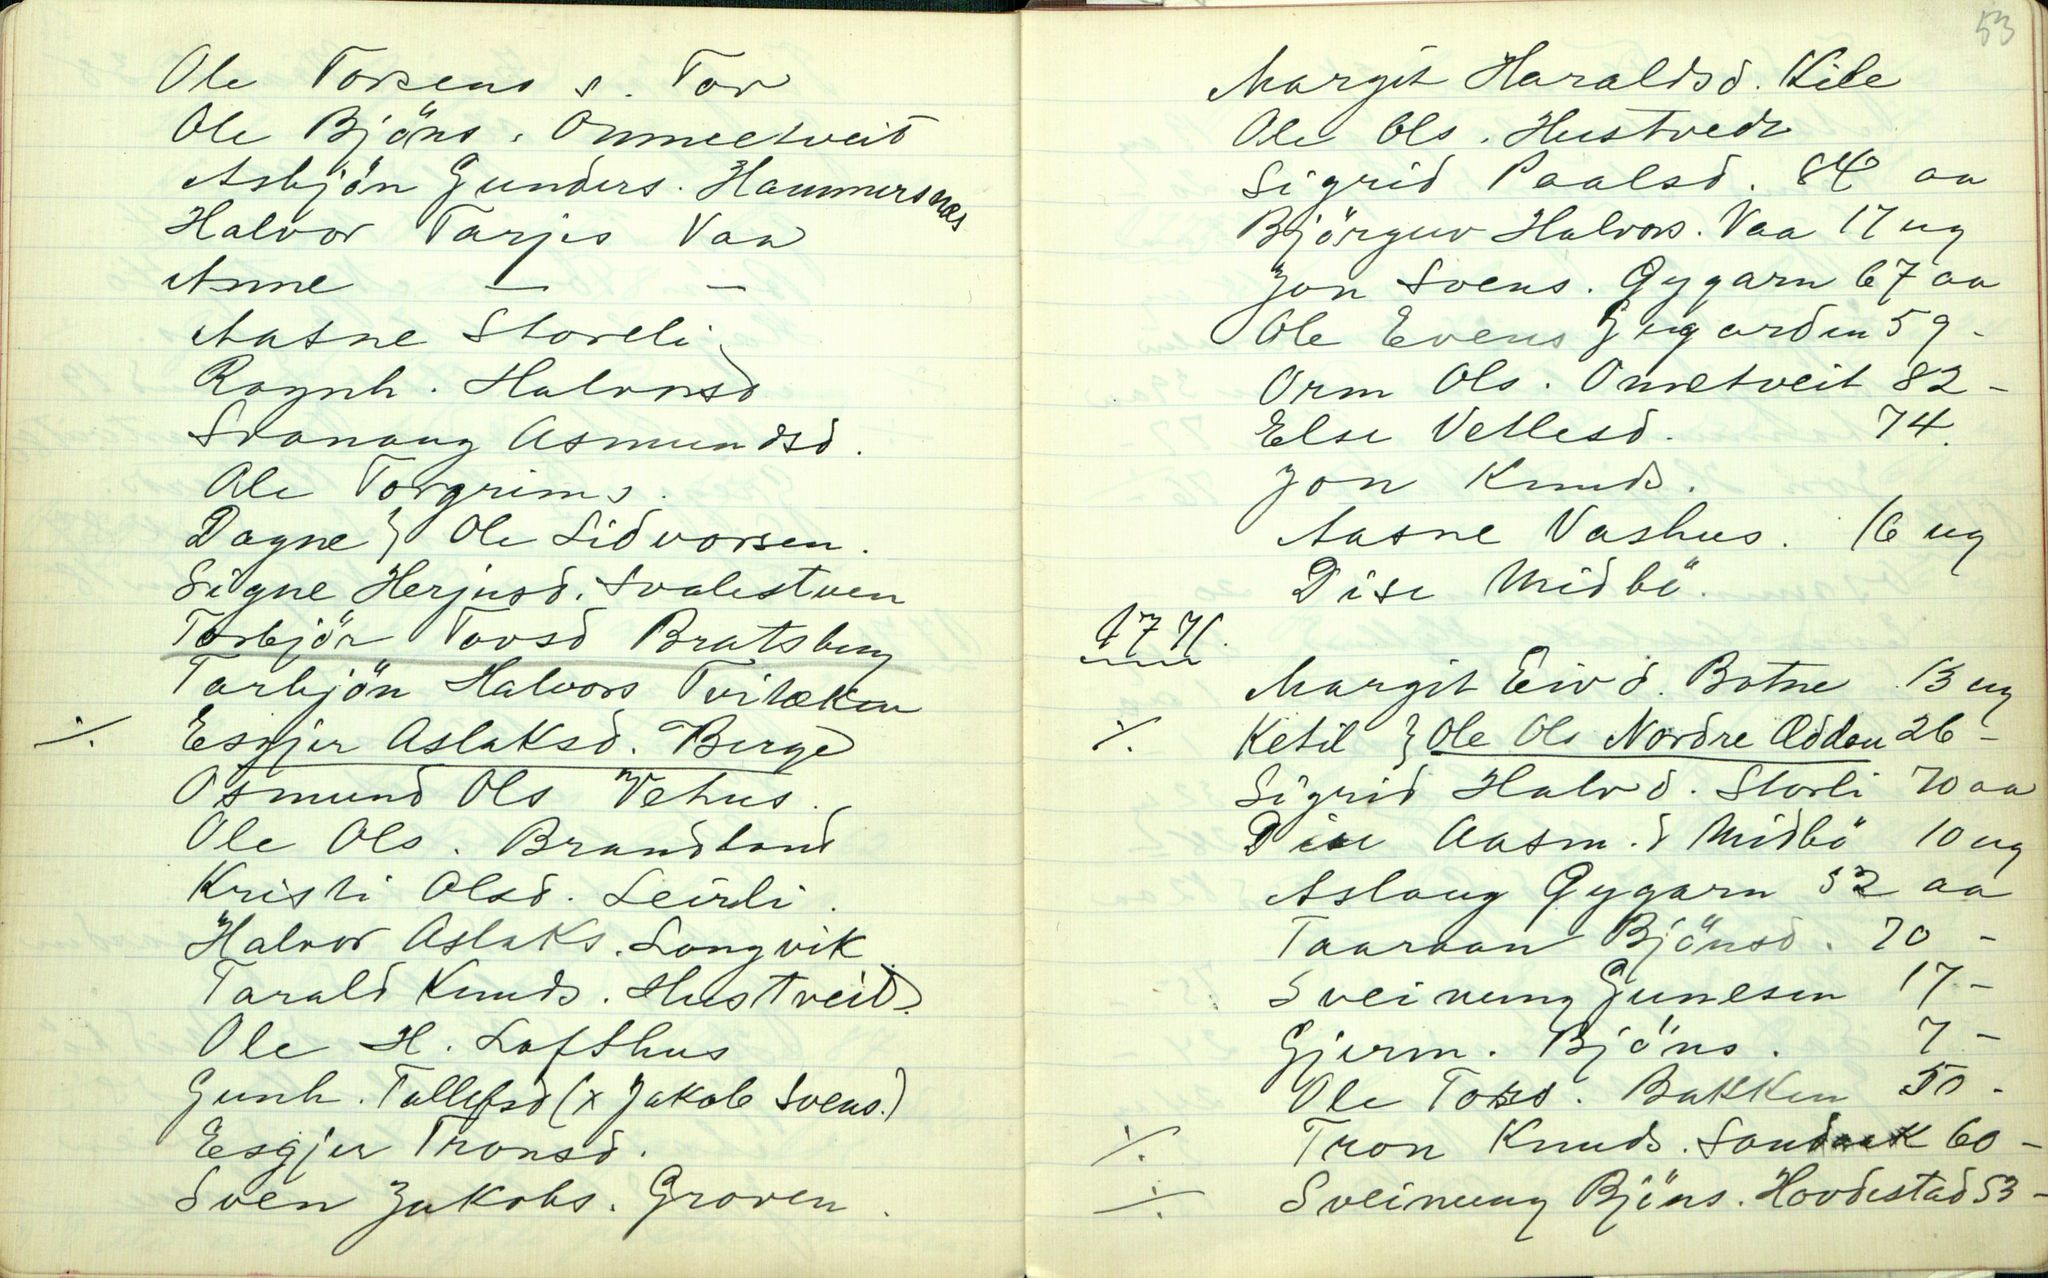 Ole Torsens s. Tor
Ole Bjöns. Ommetveit
Asbjön Gunders. Hammersnes
Halvor Tarjes Vaa
Anne — —
Aasne Storeli
Ragnh. Halvorsd
Svanaug Asmundsd.
Ole Torgrims.
Dagne } Ole Sidvorsen.
Signe Herjusd. Svalestuen
Torbjör Tovsd Bratsberg
Tarbjön Halvors Tvitæken
⁒ Esgjer Aslaksd. Berge
Osmund Ols Vehus.
Ole Ols. Brandland
Kristi Olsd. Leirli.
Halvor Aslaks. Longvik
Tarald Knuds. Hustveit.
Ole H. Lofthus
Gunh. Tallefsd (x Jakob Svens.)
Esgjer Tronsd.
Sven Jakobs. Groven.
53
Margit Haraldsd. Kile
Ole Ols. Hustvedt
Sigrid Paalsd. 84 aa
Björguv Halvors. Vaa 17 ug
Jon Svens. Gygarn 67 aa
Ole Evens Jugarden 59 -
Orm Ols. Omretveit 82 -
Else Vetlesd. 74.
Jon Knuds.
Aasne Vashus. 16 ug
Dise Midbö.
1771.
Margit Eivd. Botne 13 ug
⁒ Ketil } Ole Ols Nordre Ødden 26 -
Sigrid Halvd. Storli 70 aa
Dise Aasm.d Midbö 10 ug
Aslaug Gygarn 52 aa
Taaraan Bjönsd. 70 -
Sveinung Gunlesen 17 -
Gjerm. Bjöns. 7 -
Ole Tors. Bakken 50 -
⁒ Tron Knuds. Sandsak 60 -
⁒ Sveinung Bjöns. Hovdestad 53 -